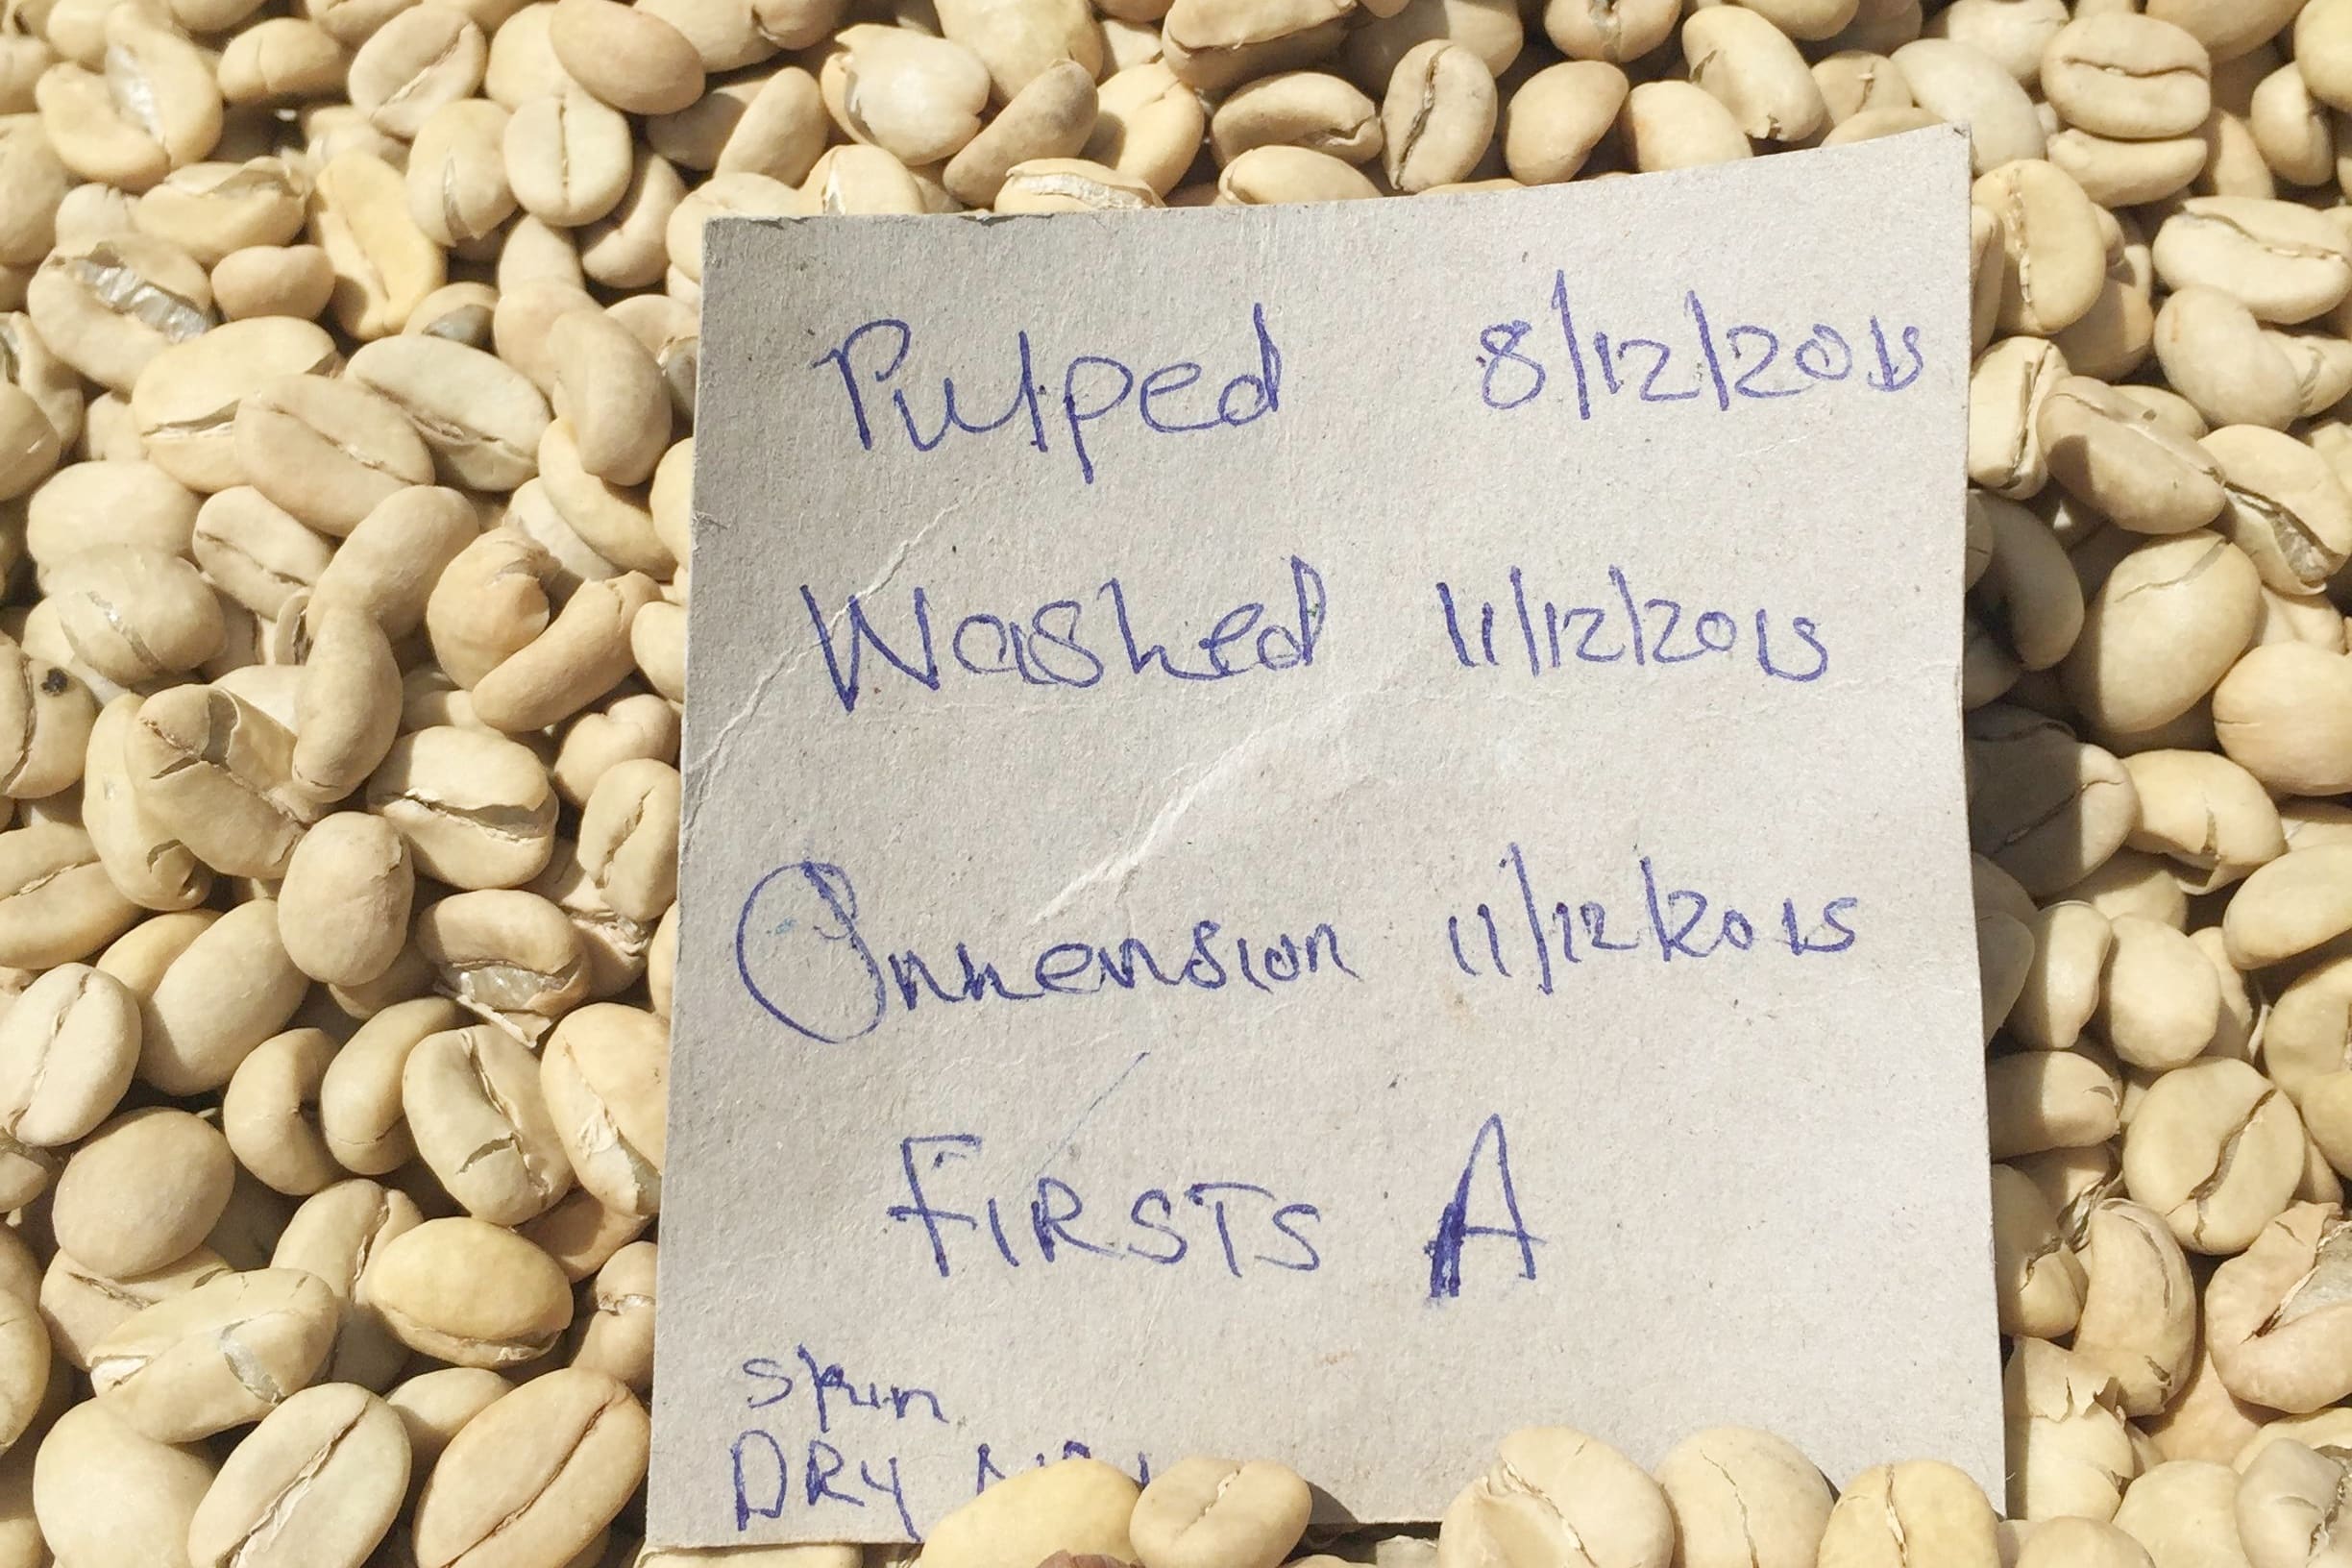 Pulped 8/12/2015
Washed 11/12/2015
11/12/2015
FIRSTS A
Skin
DRY